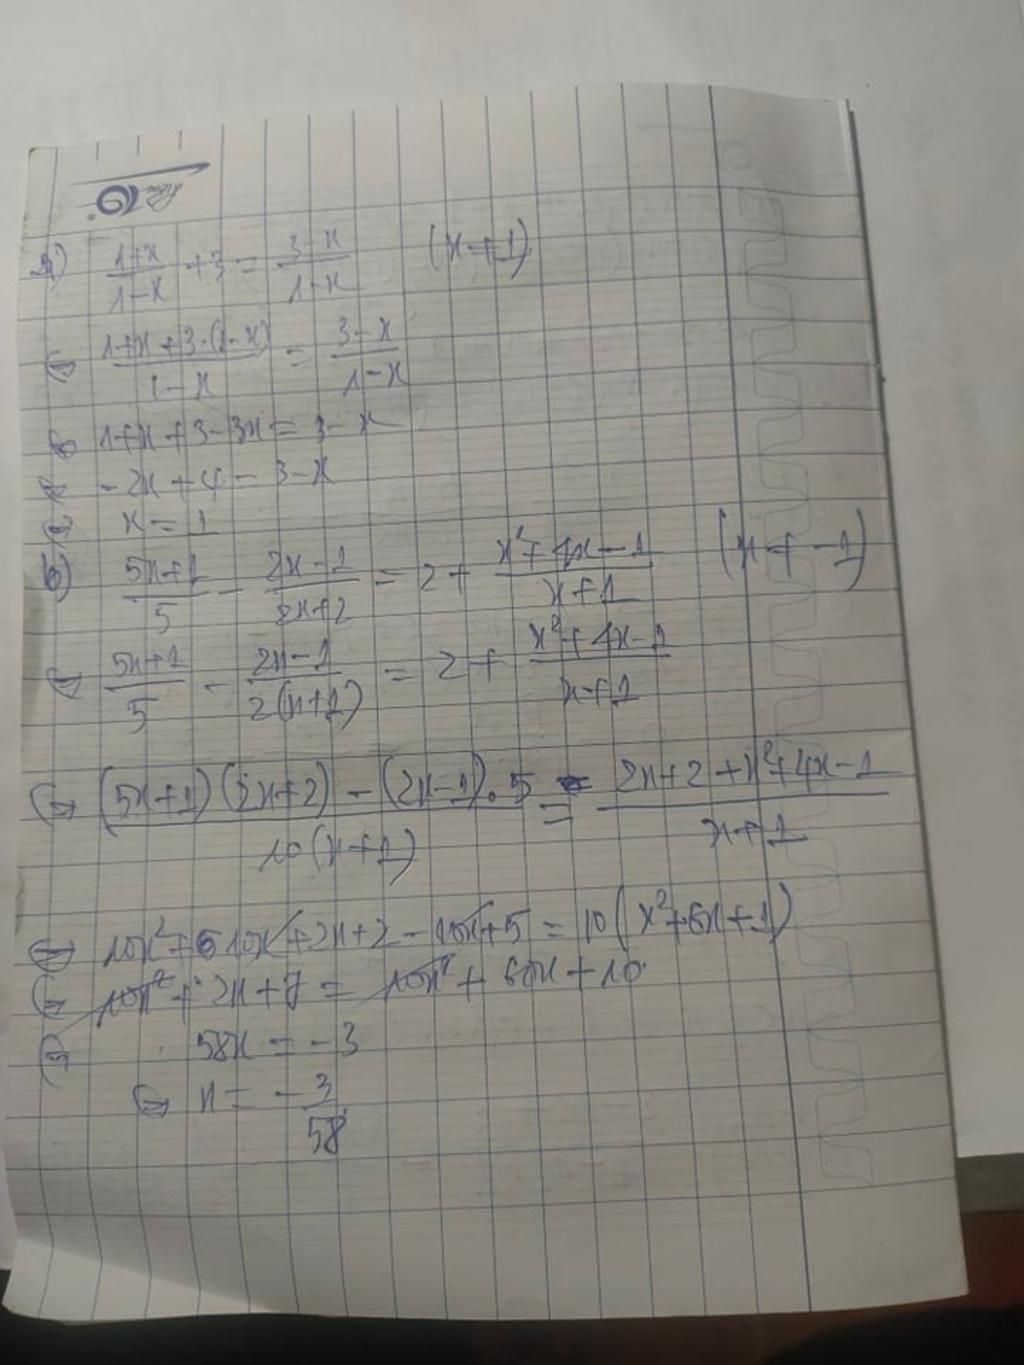 a) \frac{1+x}{1-x} + 3 = \frac{3-x}{1-x} (x ≠ 1)
⇔ \frac{1+x+3.(1-x)}{1-x} = \frac{3-x}{1-x}
⇔ 1+x+3-3x = 3-x
⇔ -2x+4 = 3-x
⇔ x = 1
b) \frac{5x+1}{5} - \frac{2x-1}{2x+2} = 2 + \frac{x²+4x-1}{x+1} (x ≠ -1)
⇔ \frac{5x+1}{5} - \frac{2x-1}{2(x+1)} = 2 + \frac{x²+4x-1}{x+1}
⇔ \frac{(5x+1)(2x+2) - (2x-1).5}{10(x+1)} = \frac{2x+2+x²+4x-1}{x+1}
⇔ 10x²+10x+2x+2-10x+5 = 10(x²+6x+1)
⇔ 10x²+2x+7 = 10x²+60x+10
⇔ 58x = -3
⇔ x = -\frac{3}{58}